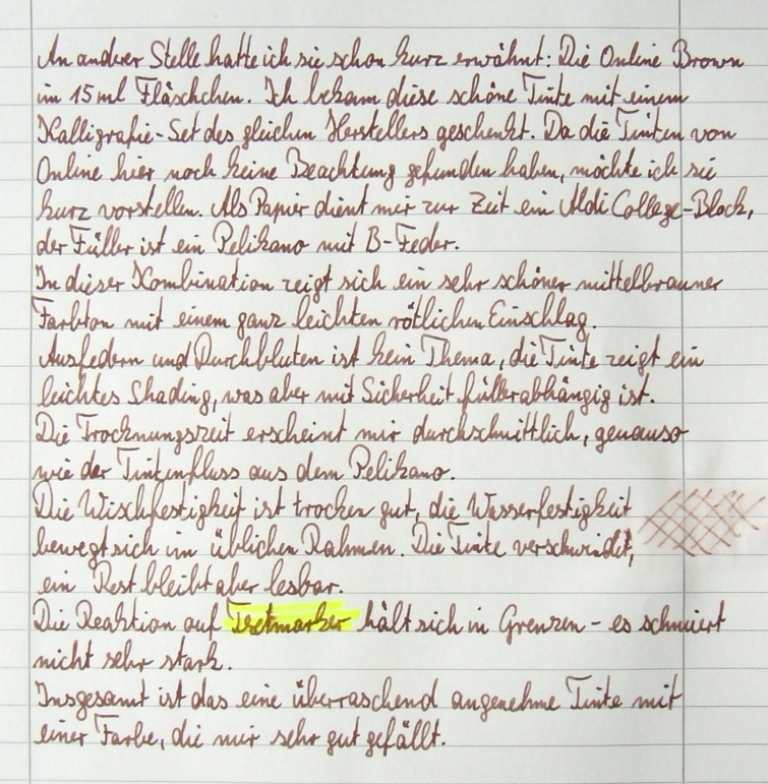 An anderer Stelle hatte ich sie schon kurz erwähnt: Die Online Brown
im 15 ml Fläschchen. Ich bekam diese schöne Tinte mit einem
Kalligrafie-Set des gleichen Herstellers geschenkt. Da die Tinten von
Online hier noch keine Beachtung gefunden haben, möchte ich sie
kurz vorstellen. Als Papier dient mir zur Zeit ein Aldi College-Block,
der Füller ist ein Pelikano mit B-Feder.
In dieser Kombination zeigt sich ein sehr schöner mittelbrauner
Farbton mit einem ganz leichten rötlichen Einschlag.
Ausfedern und Durchbluten ist kein Thema, die Tinte zeigt ein
leichtes Shading, was aber mit Sicherheit füllerabhängig ist.
Die Trocknungszeit erscheint mir durchschnittlich, genauso
wie der Tintenfluss aus dem Pelikano.
Die Wischfestigkeit ist trocken gut, die Wasserfestigkeit
bewegt sich im üblichen Rahmen. Die Tinte verschwindet,
ein Rest bleibt aber lesbar.
Die Reaktion auf Textmarker hält sich in Grenzen - es schmiert
nicht sehr stark.
Insgesamt ist das eine überraschend angenehme Tinte mit
einer Farbe, die mir sehr gut gefällt.